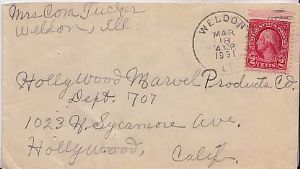 Mrs Cora Tucker
Weldon, Ill
WELDON
MAR
18
1931
2 CENTS 2
Hollywood Marvel Products Co.
Dept. 707
1023 N. Sycamore Ave,
Hollywood,
Calif